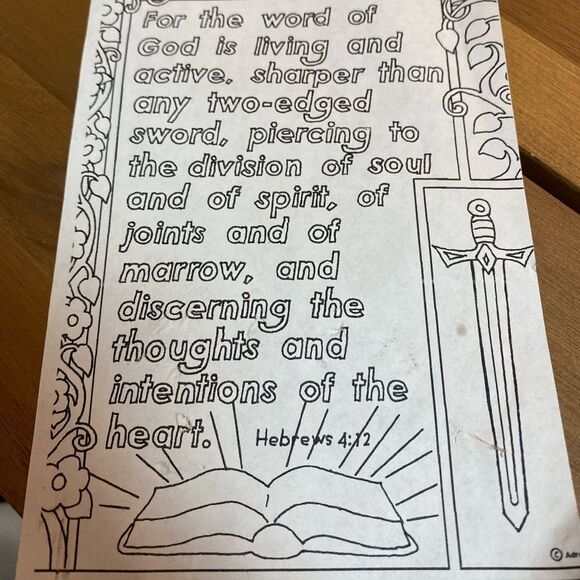 For the word of
God is living and
active, sharper than
any two-edged
sword, piercing to
the division of soul
and of spirit, of
joints and of
marrow, and
discerning the
thoughts and
intentions of the
heart. Hebrews 4:12
©